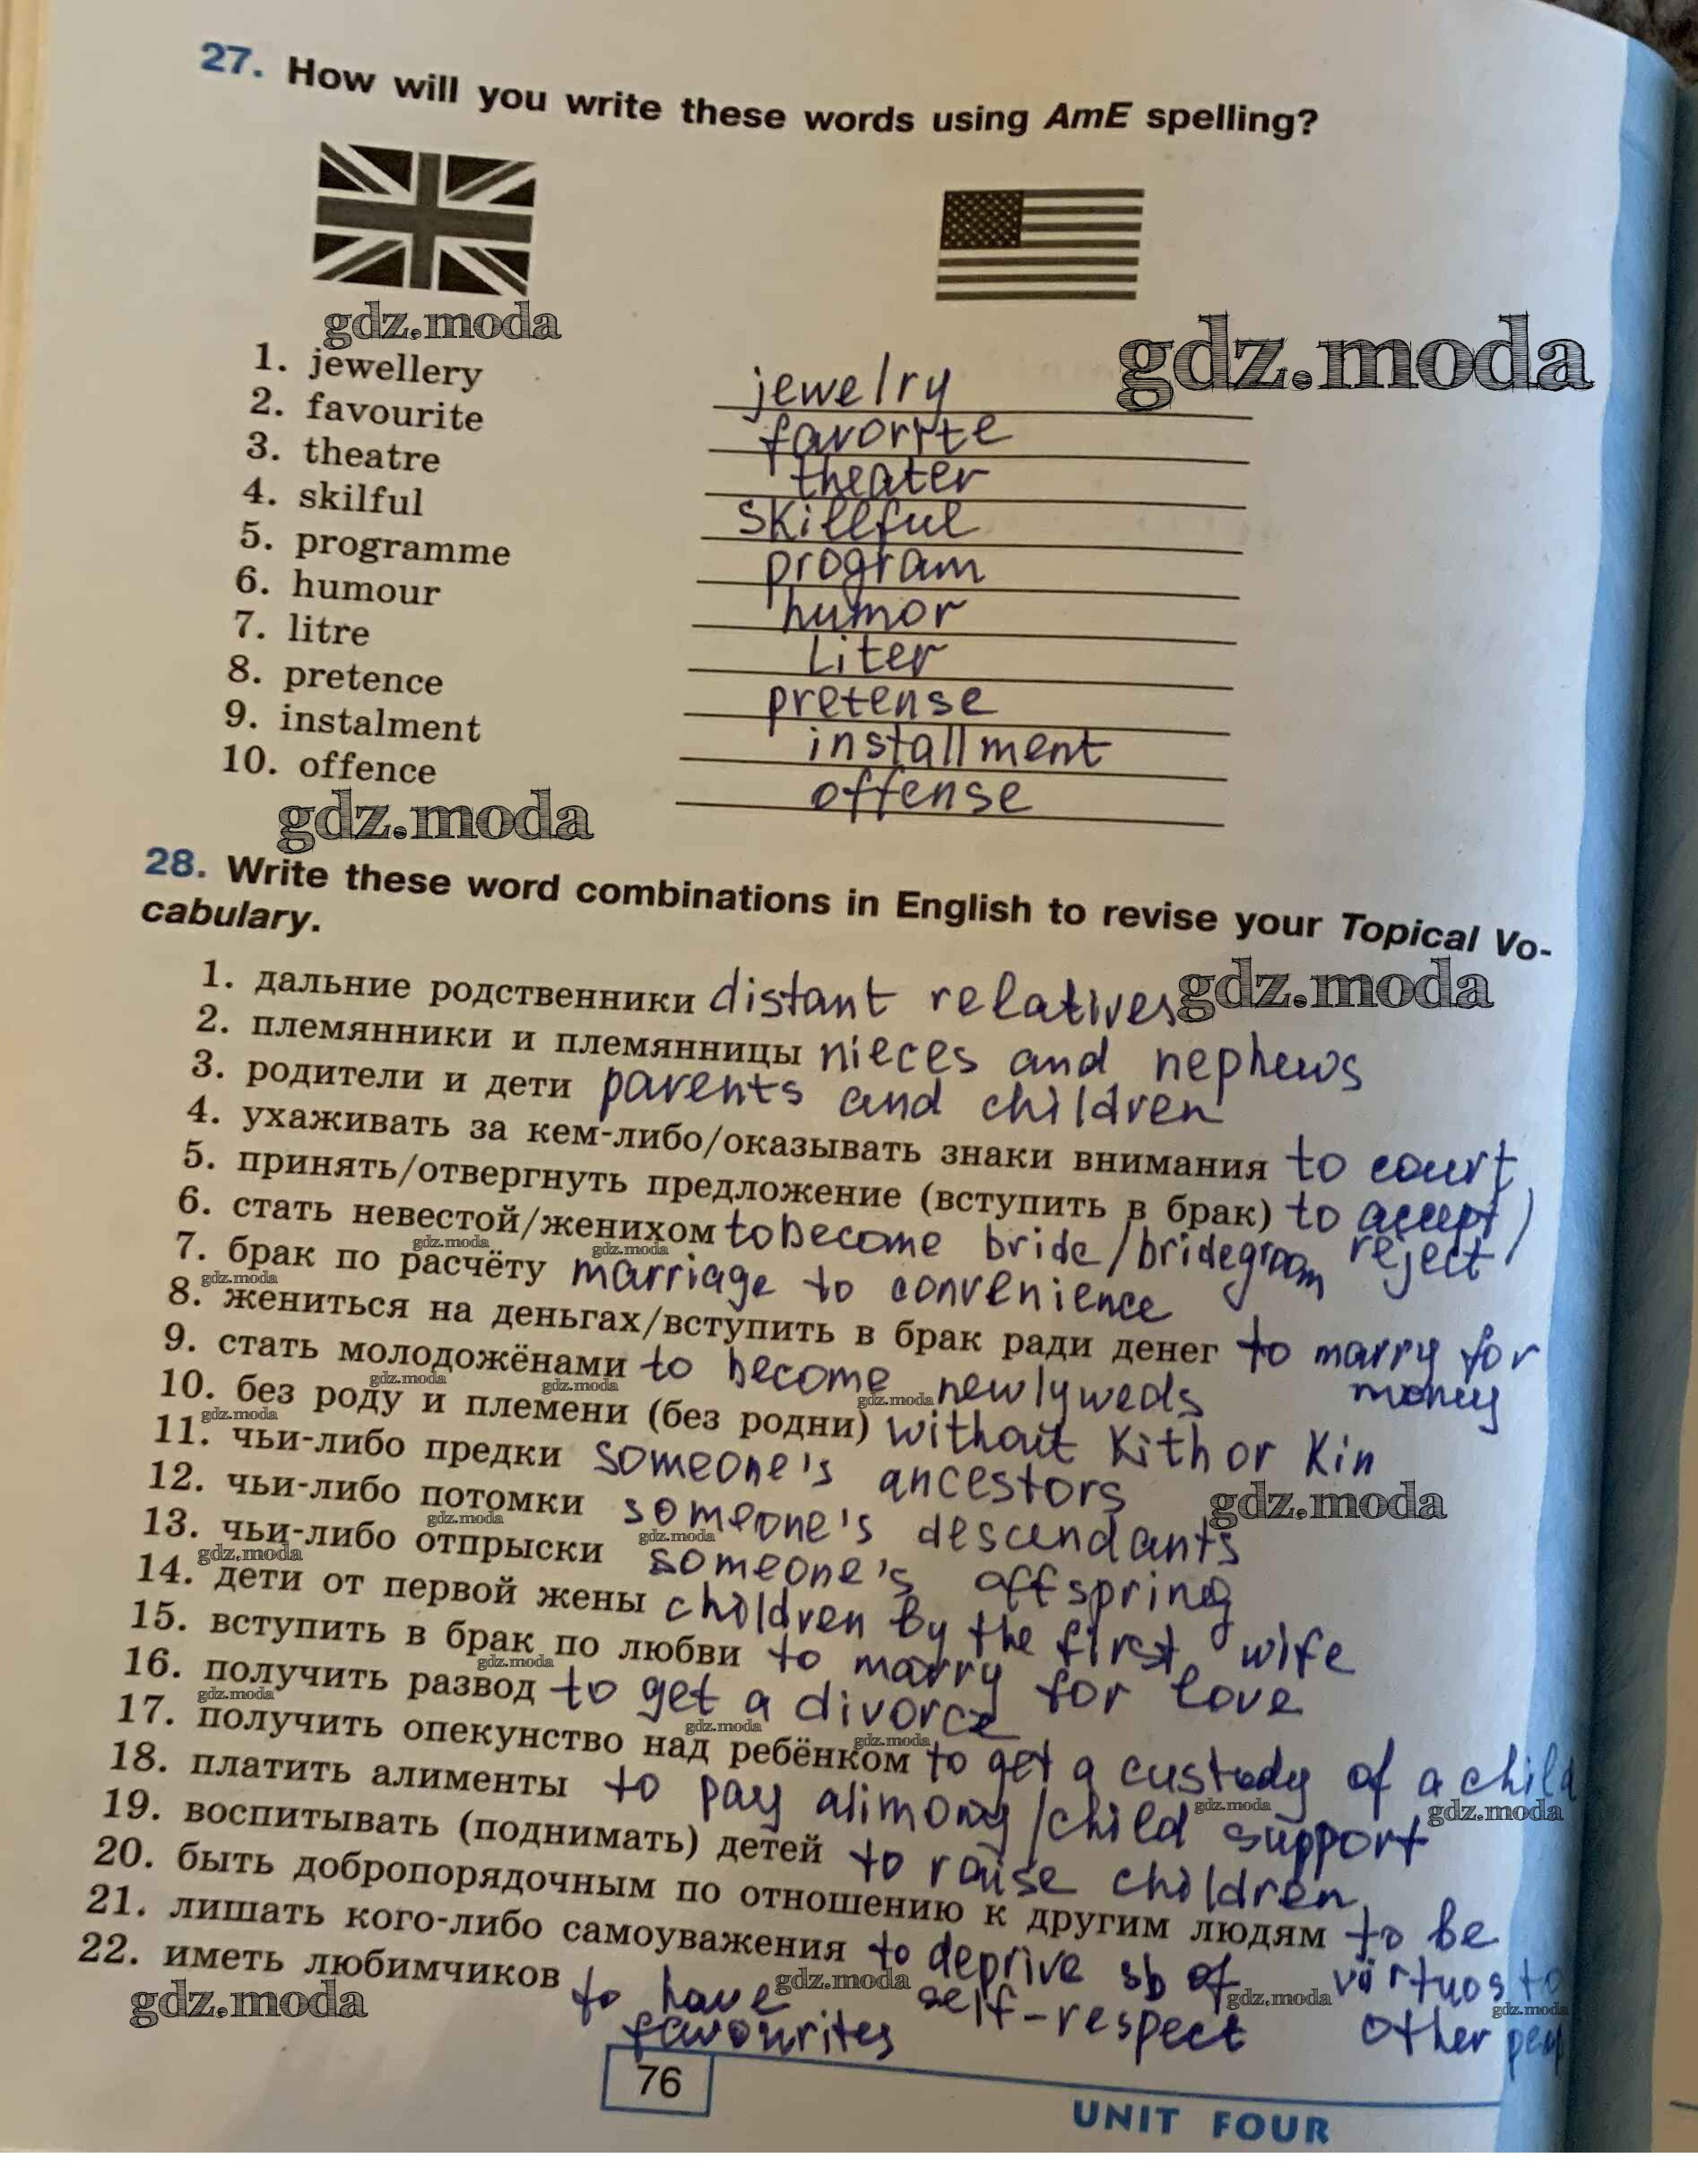 27. How will you write these words using AmE spelling?
gdz.moda
gdz.moda
1. jewellery jewelry
2. favourite favorite
3. theatre theater
4. skilful skillful
5. programme program
6. humour humor
7. litre Liter
8. pretence pretense
9. instalment installment
10. offence offense
gdz.moda
28. Write these word combinations in English to revise your Topical Vo-
cabulary.
1. дальние родственники distant relatives
gdz.moda
2. племянники и племянницы nieces and nephews
3. родители и дети parents and children
4. ухаживать за кем-либо/оказывать знаки внимания to court
5. принять/отвергнуть предложение (вступить в брак) to accept/
reject
6. стать невестой/женихом to become bride/bridegroom
gdz.moda gdz.moda
7. брак по расчёту marriage to convenience
gdz.moda
8. жениться на деньгах/вступить в брак ради денег to marry for
money
9. стать молодожёнами to become newlyweds
gdz.moda gdz.moda gdz.moda
10. без роду и племени (без родни) without Kith or Kin
gdz.moda
11. чьи-либо предки someone's ancestors
12. чьи-либо потомки someone's descendants
gdz.moda gdz.moda gdz.moda
13. чьи-либо отпрыски someone's offspring
gdz.moda
14. дети от первой жены children by the first wife
15. вступить в брак по любви to marry for love
gdz.moda
16. получить развод to get a divorce
gdz.moda gdz.moda gdz.moda
17. получить опекунство над ребёнком to get a custody of a child
18. платить алименты to pay alimony/child support
gdz.moda gdz.moda
19. воспитывать (поднимать) детей to raise children
20. быть добропорядочным по отношению к другим людям to be
virtuos to
other peop
21. лишать кого-либо самоуважения to deprive sb of
self-respect
22. иметь любимчиков to have
favourites
gdz.moda gdz.moda gdz.moda gdz.moda
76
UNIT FOUR